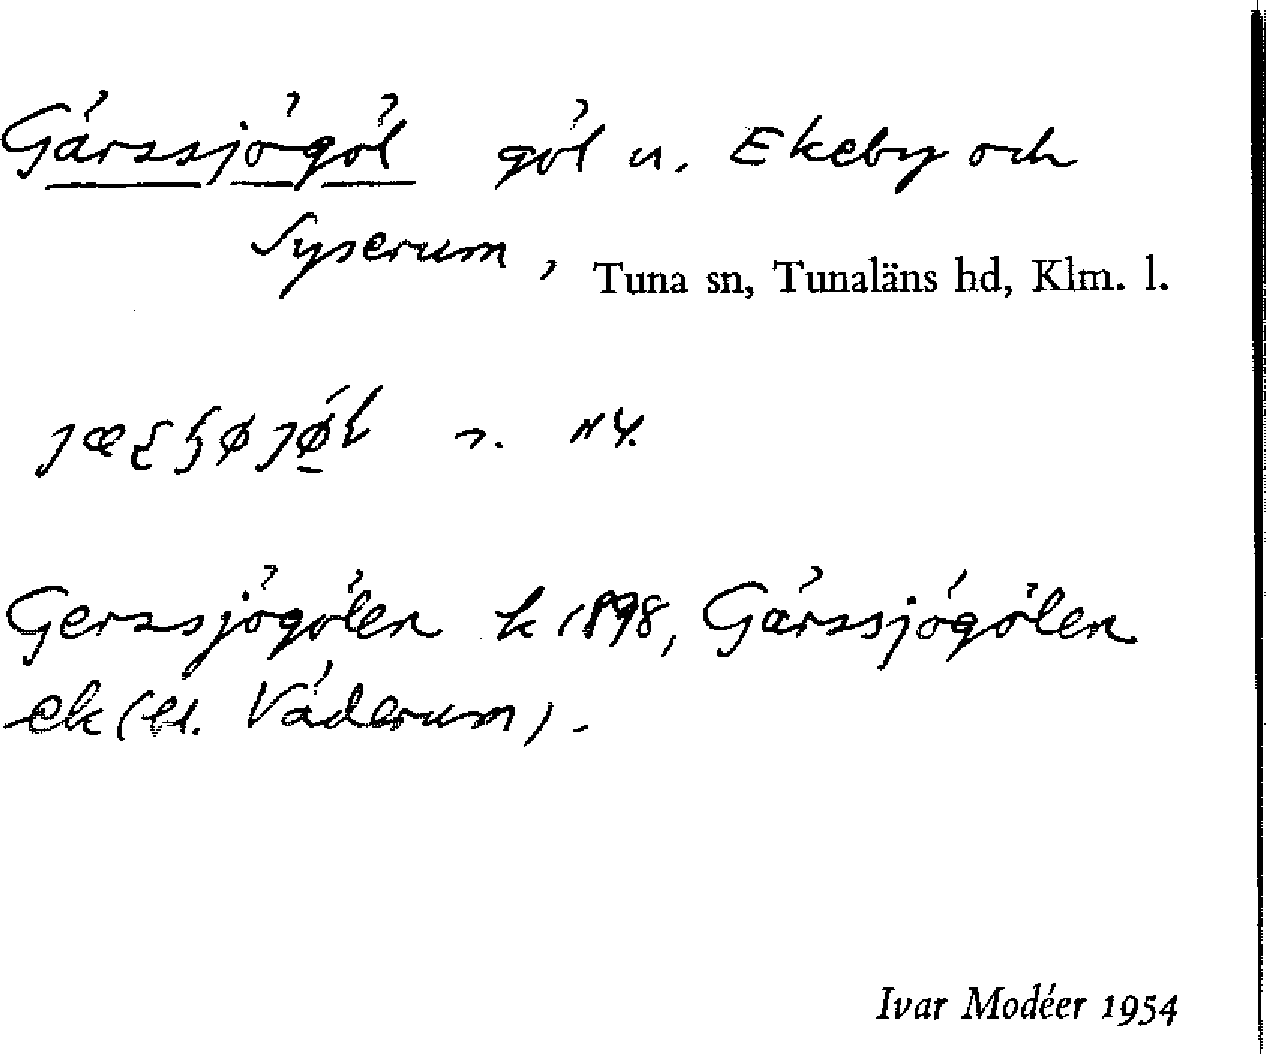 Gärssjögöl göl u. Ekeby och
Syserum, Tuna sn, Tunaläns hd, Klm. l.
Gerssjögölen k 1898, Gärssjögölen
ek (u. Väderum).
Ivar Modéer 1954